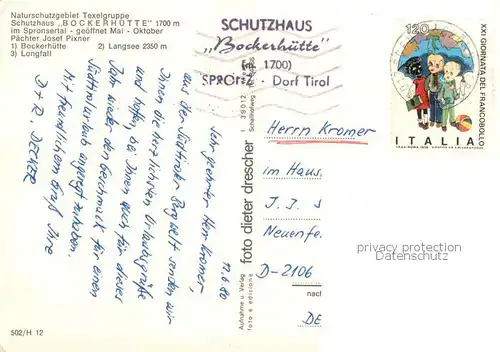 Naturschutzgebiet Texelgruppe
Schutzhaus „BOCKERHÜTTE" 1700 m
im Spronsertal - geöffnet Mai - Oktober
Pächter Josef Pixner
1) Bockerhütte 2) Langsee 2350 m
3) Longfall
SCHUTZHAUS
„Bockerhütte"
(m 1700)
Dorf Tirol
120
XXI GIORNATA DEL FRANCOBOLLO
ITALIA
12.6.80
Sehr geehrter Herr Kromer,
aus der Südtiroler Bergwelt senden wir
Ihnen die herzlichsten Urlaubsgrüße
und hoffen, bei Ihnen auch für dieses
Jahr wieder den Geschmack für einen
Südtirolurlaub angeregt zu haben.
Mit freundlichem Gruß Ihre
D + R. DECKER
Aufnahme u. Verlag
foto e edizione
foto dieter drescher
Herrn Kromer
im Haus
J. J.
Neuenfe
D-2106
nach
DE
privacy protection
Datenschutz
502/H 12